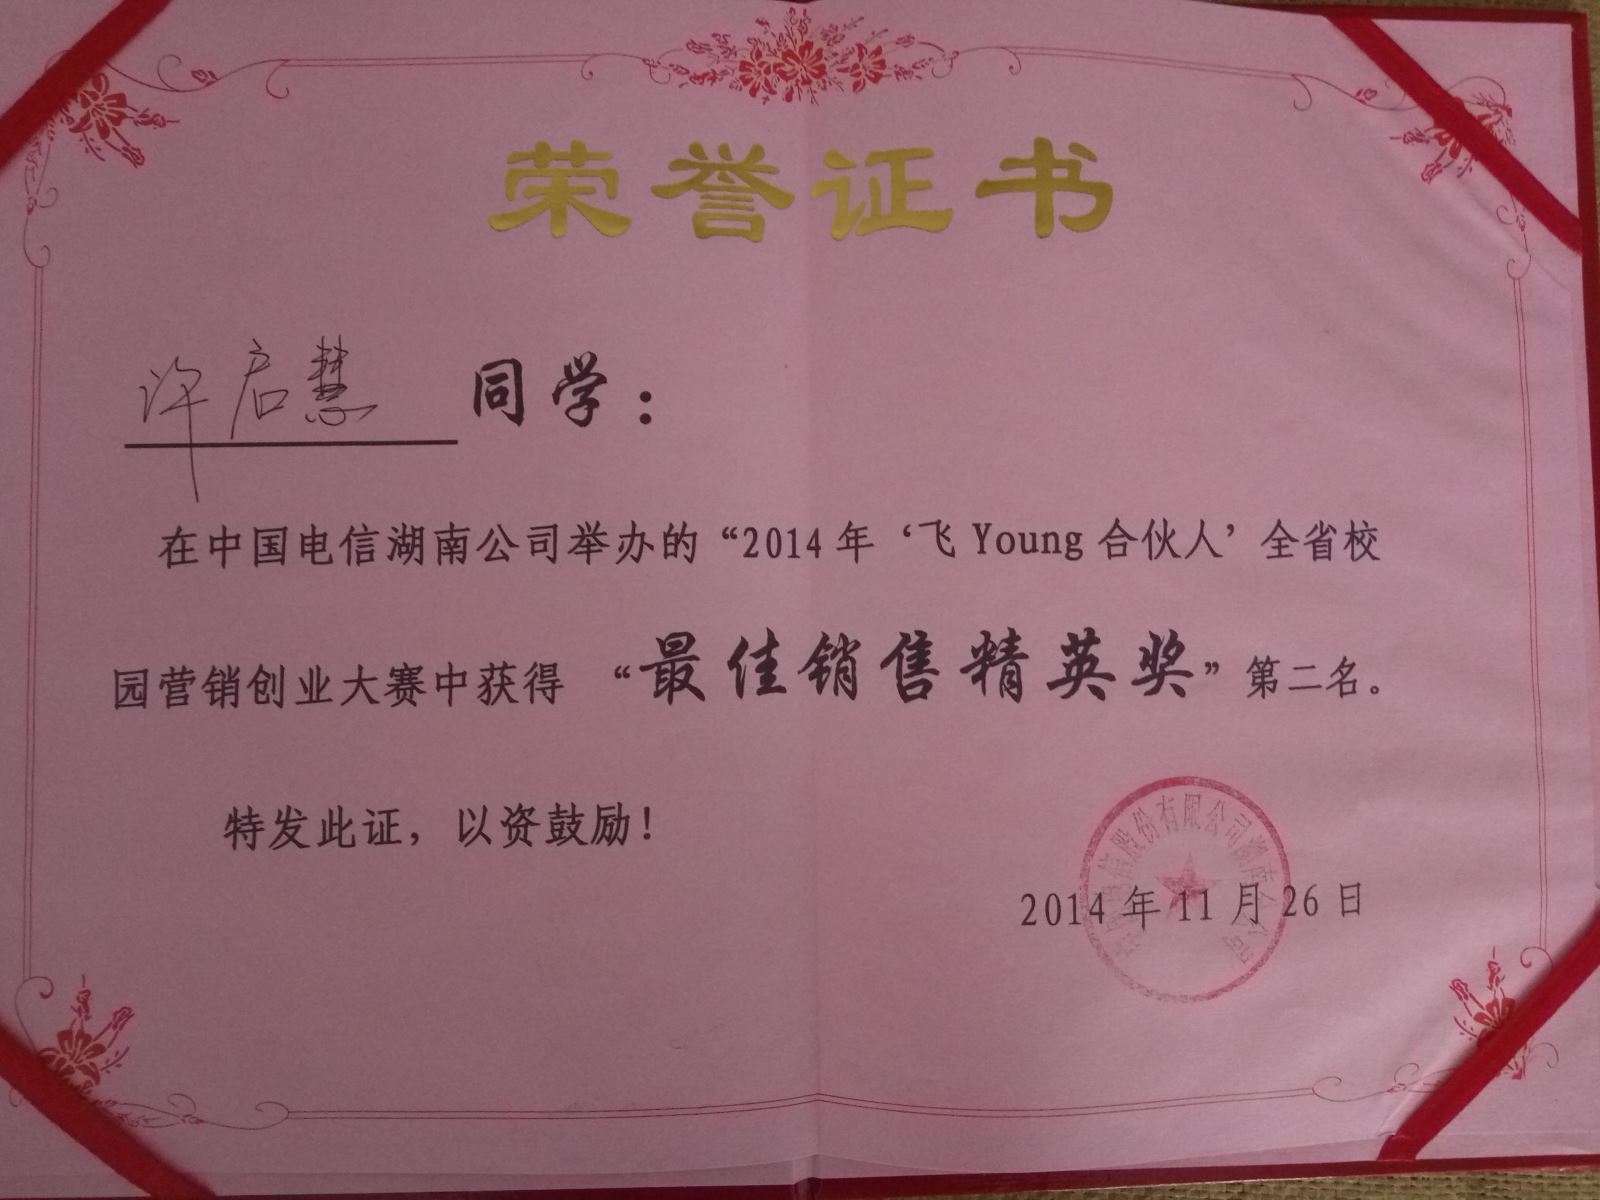 荣誉证书
许启慧 同学：
在中国电信湖南公司举办的“2014年‘飞Young合伙人’全省校
园营销创业大赛中获得 “最佳销售精英奖”第二名。
特发此证，以资鼓励！
中国电信股份有限公司湖南分公司
2014年11月26日